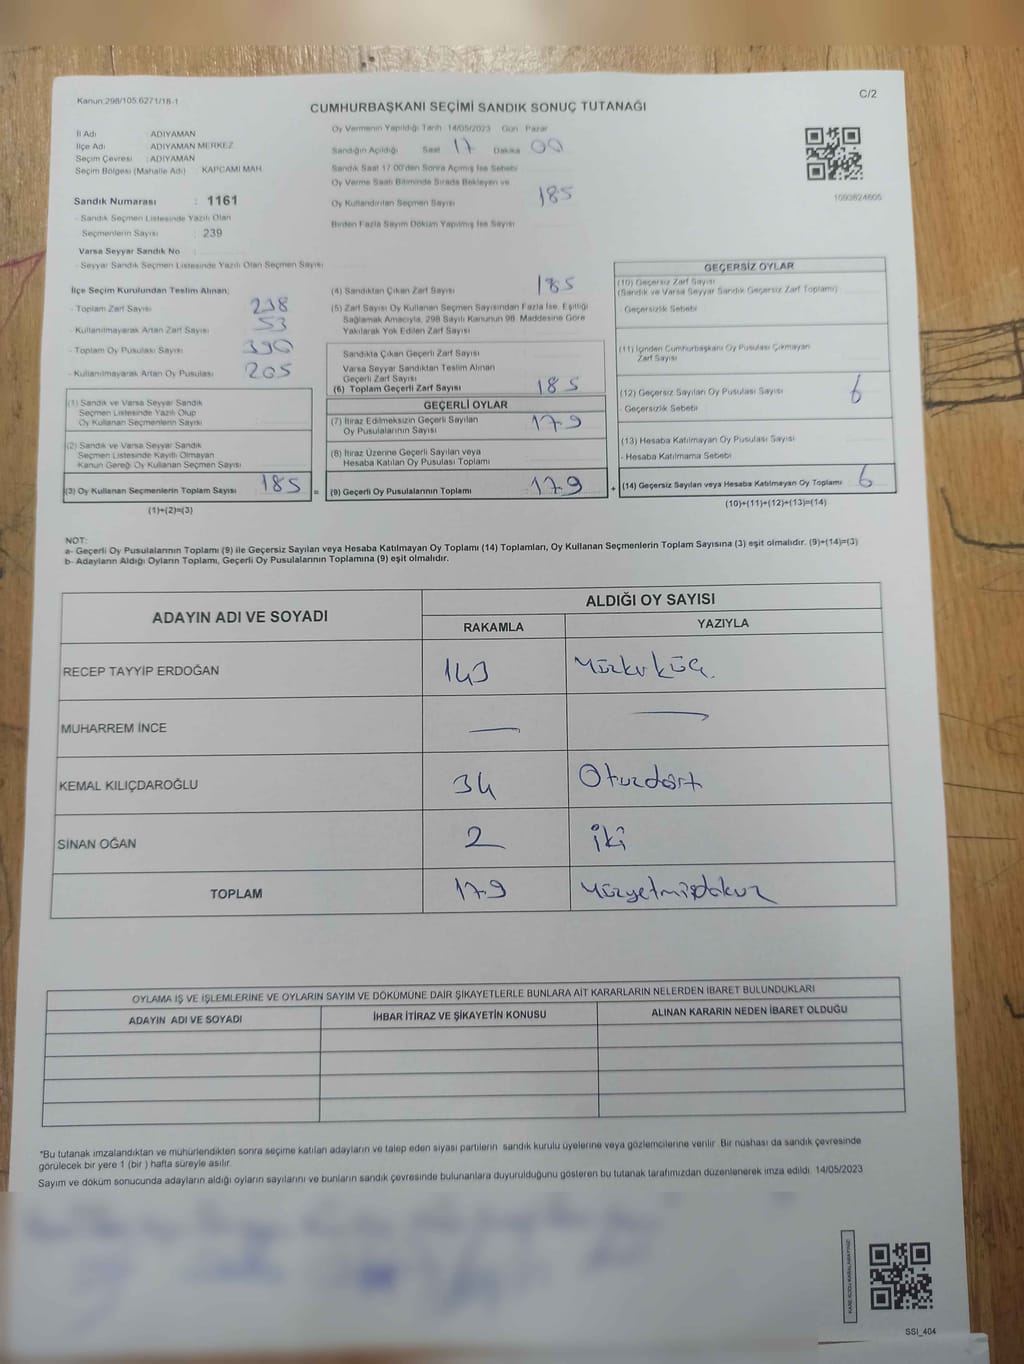 Kanun:298/105.6271/18-1
C/2
CUMHURBAŞKANI SEÇİMİ SANDIK SONUÇ TUTANAĞI
İl Adı : ADIYAMAN
İlçe Adı : ADIYAMAN MERKEZ
Seçim Çevresi : ADIYAMAN
Seçim Bölgesi (Mahalle Adı) KAPCAMİ MAH.
Sandık Numarası : 1161
- Sandık Seçmen Listesinde Yazılı Olan
Seçmenlerin Sayısı : 239
Varsa Seyyar Sandık No
- Seyyar Sandık Seçmen Listesinde Yazılı Olan Seçmen Sayısı
Oy Vermenin Yapıldığı Tarih 14/05/2023 Gün Pazar
Sandığın Açıldığı Saat 17 Dakika 00
Sandık Saat 17.00'den Sonra Açılmış İse Sebebi
Oy Verme Saati Bitiminde Sırada Bekleyen ve
Oy Kullandırılan Seçmen Sayısı 185
Birden Fazla Sayım Döküm Yapılmış İse Sayısı
1093624605
İlçe Seçim Kurulundan Teslim Alınan;
- Toplam Zarf Sayısı 238
- Kullanılmayarak Artan Zarf Sayısı 53
- Toplam Oy Pusulası Sayısı 390
- Kullanılmayarak Artan Oy Pusulası 205
(1) Sandık ve Varsa Seyyar Sandık
Seçmen Listesinde Yazılı Olup
Oy Kullanan Seçmenlerin Sayısı
(2) Sandık ve Varsa Seyyar Sandık
Seçmen Listesinde Kayıtlı Olmayan
Kanun Gereği Oy Kullanan Seçmen Sayısı
(3) Oy Kullanan Seçmenlerin Toplam Sayısı 185 =
(1)+(2)=(3)
(4) Sandıktan Çıkan Zarf Sayısı 185
(5) Zarf Sayısı Oy Kullanan Seçmen Sayısından Fazla İse, Eşitliği
Sağlamak Amacıyla, 298 Sayılı Kanunun 98. Maddesine Göre
Yakılarak Yok Edilen Zarf Sayısı
Sandıkta Çıkan Geçerli Zarf Sayısı
Varsa Seyyar Sandıktan Teslim Alınan
Geçerli Zarf Sayısı
(6) Toplam Geçerli Zarf Sayısı 185
GEÇERLİ OYLAR
(7) İtiraz Edilmeksizin Geçerli Sayılan
Oy Pusulalarının Sayısı 179
(8) İtiraz Üzerine Geçerli Sayılan veya
Hesaba Katılan Oy Pusulası Toplamı
(9) Geçerli Oy Pusulalarının Toplamı 179 +
GEÇERSİZ OYLAR
(10) Geçersiz Zarf Sayısı
(Sandık ve Varsa Seyyar Sandık Geçersiz Zarf Toplamı)
- Geçersizlik Sebebi
(11) İçinden Cumhurbaşkanı Oy Pusulası Çıkmayan
Zarf Sayısı
(12) Geçersiz Sayılan Oy Pusulası Sayısı 6
- Geçersizlik Sebebi
(13) Hesaba Katılmayan Oy Pusulası Sayısı
- Hesaba Katılmama Sebebi
(14) Geçersiz Sayılan veya Hesaba Katılmayan Oy Toplamı 6
(10)+(11)+(12)+(13)=(14)
NOT:
a- Geçerli Oy Pusulalarının Toplamı (9) ile Geçersiz Sayılan veya Hesaba Katılmayan Oy Toplamı (14) Toplamları, Oy Kullanan Seçmenlerin Toplam Sayısına (3) eşit olmalıdır. (9)+(14)=(3)
b- Adayların Aldığı Oyların Toplamı, Geçerli Oy Pusulalarının Toplamına (9) eşit olmalıdır.
ADAYIN ADI VE SOYADI ALDIĞI OY SAYISI
RAKAMLA YAZIYLA
RECEP TAYYİP ERDOĞAN 143 Yüzkırküç
MUHARREM İNCE — —
KEMAL KILIÇDAROĞLU 34 Otuzdört
SİNAN OĞAN 2 iki
TOPLAM 179 Yüzyetmişdokuz
OYLAMA İŞ VE İŞLEMLERİNE VE OYLARIN SAYIM VE DÖKÜMÜNE DAİR ŞİKAYETLERLE BUNLARA AİT KARARLARIN NELERDEN İBARET BULUNDUKLARI
ADAYIN ADI VE SOYADI İHBAR İTİRAZ VE ŞİKAYETİN KONUSU ALINAN KARARIN NEDEN İBARET OLDUĞU
*Bu tutanak imzalandıktan ve mühürlendikten sonra seçime katılan adayların ve talep eden siyasi partilerin sandık kurulu üyelerine veya gözlemcilerine verilir. Bir nüshası da sandık çevresinde
görülecek bir yere 1 (bir) hafta süreyle asılır.
Sayım ve döküm sonucunda adayların aldığı oyların sayılarını ve bunların sandık çevresinde bulunanlara duyurulduğunu gösteren bu tutanak tarafımızdan düzenlenerek imza edildi. 14/05/2023
KARE KODU KARALAMAYINIZ!
SSI_404